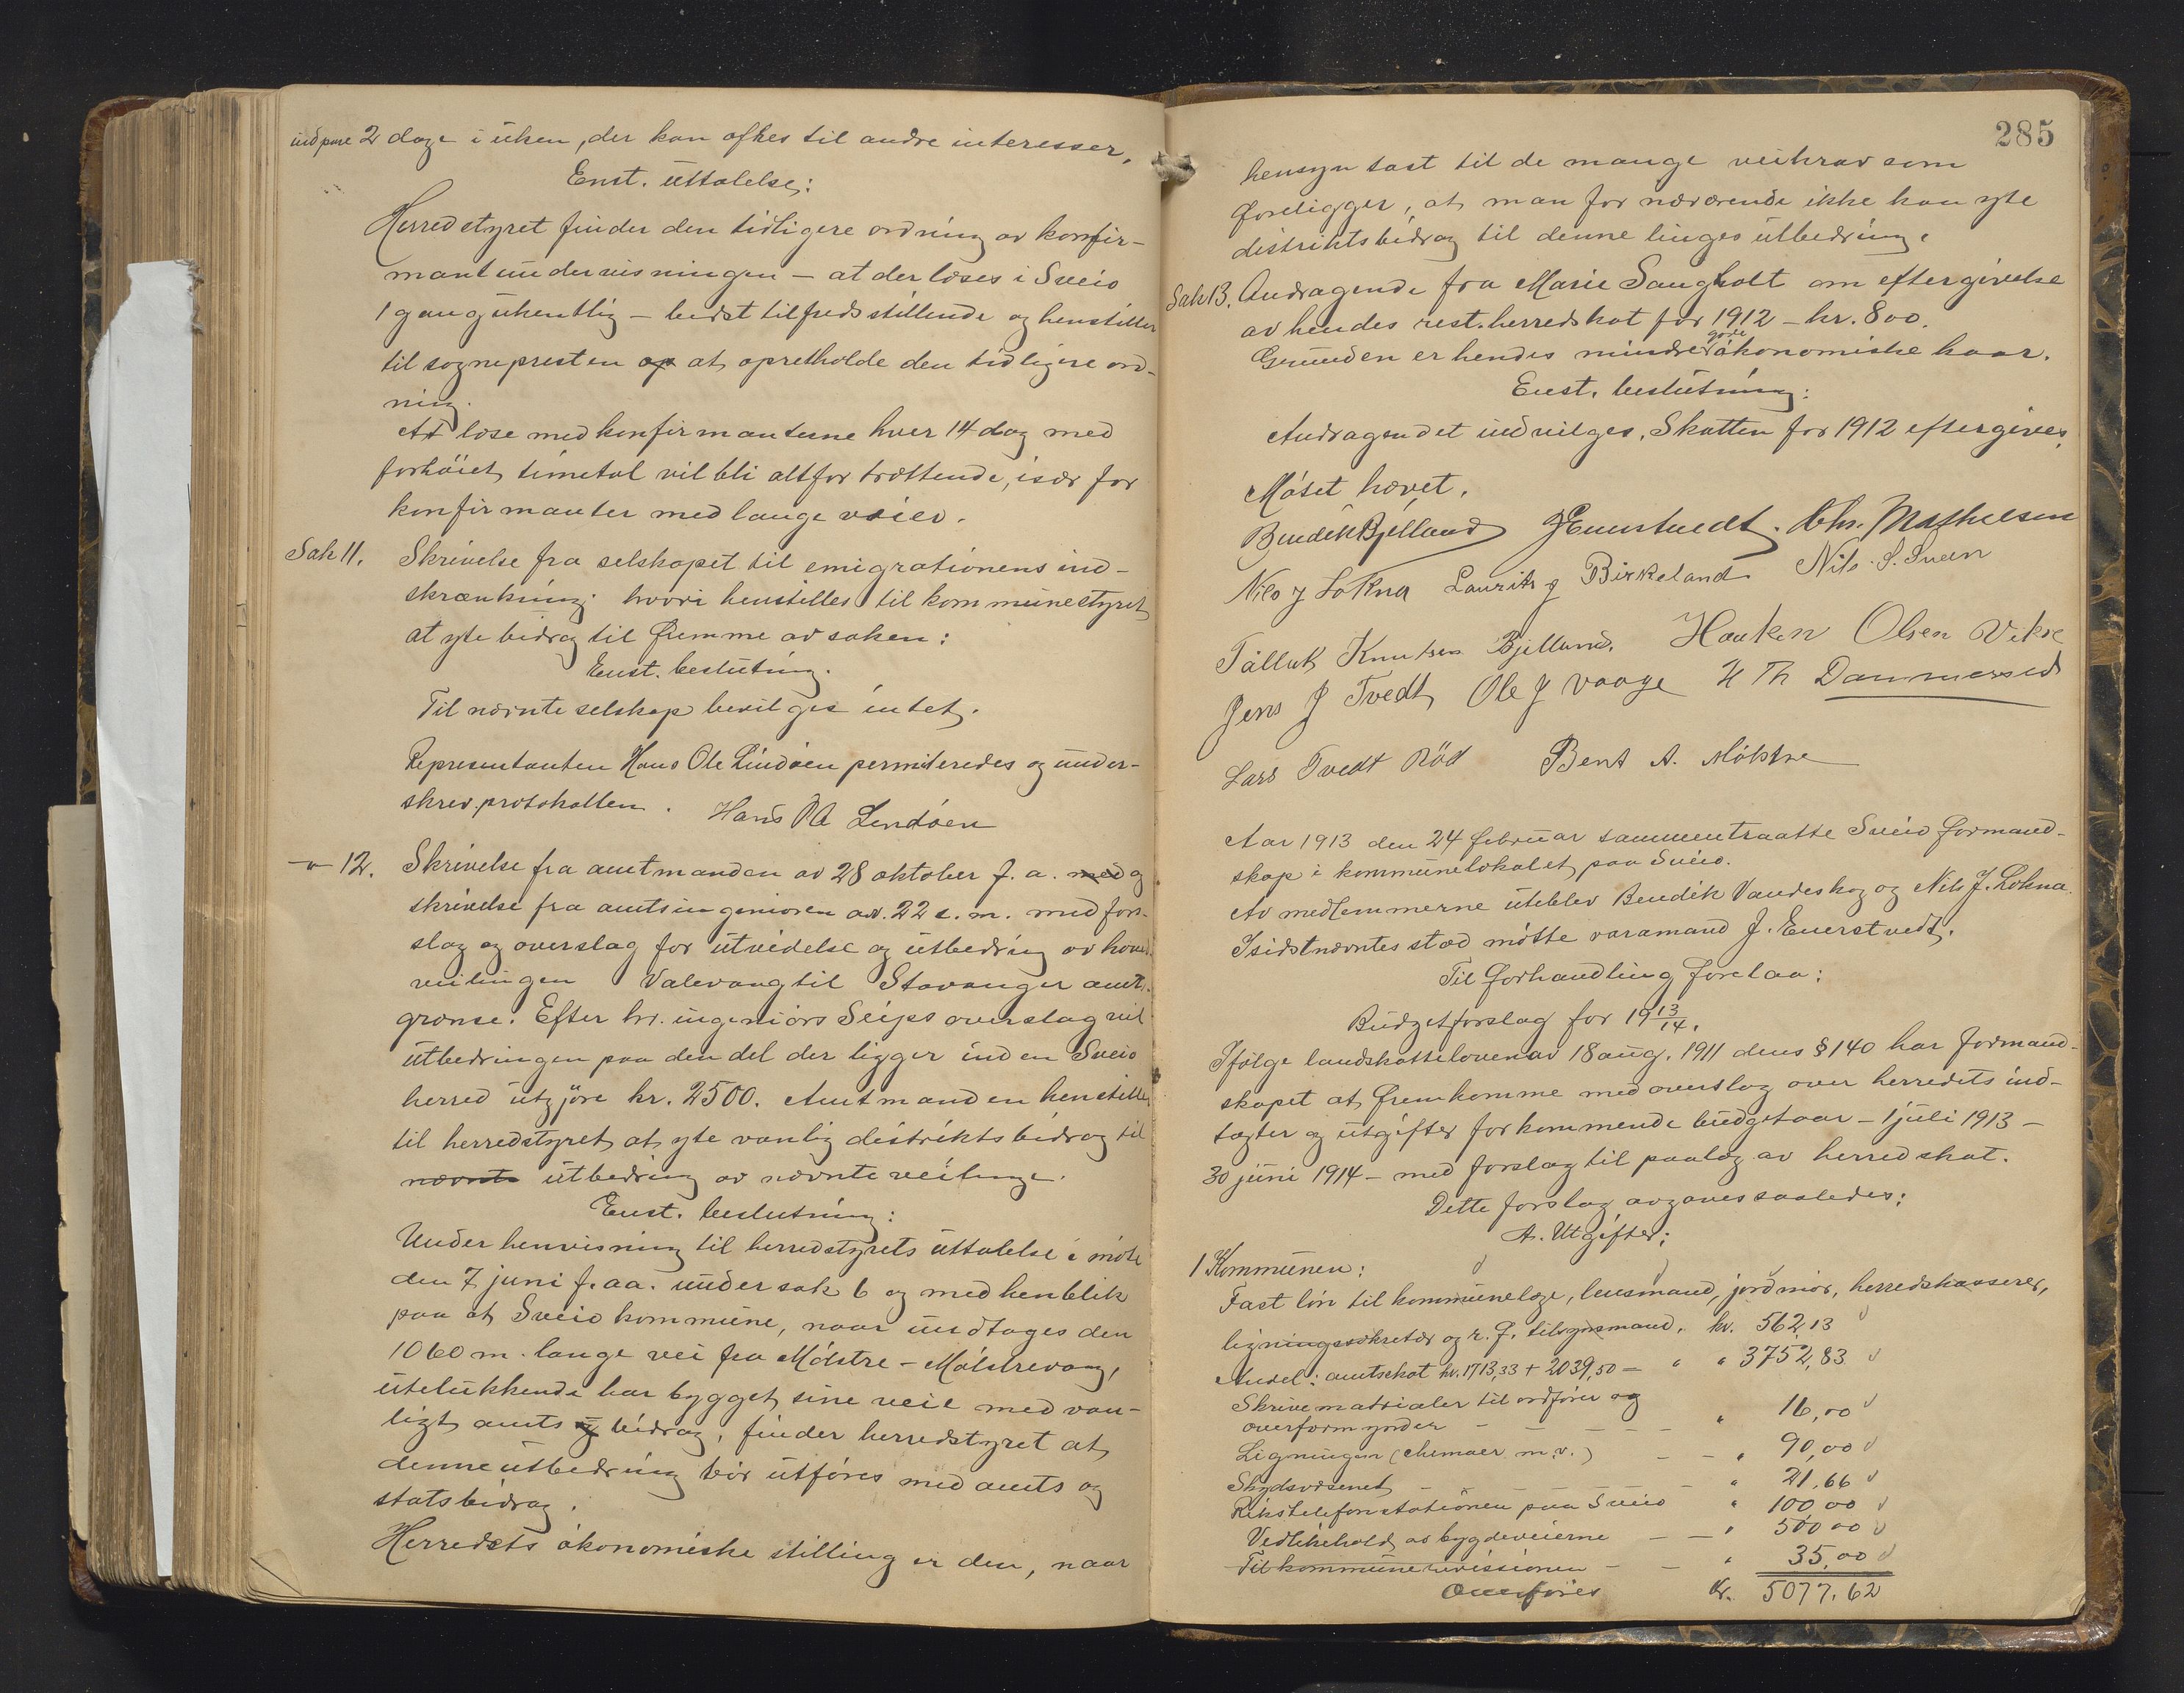 indspare 2 dage i uken, der kan ofres til andre interesser,
Enst. uttalelse:
Herredstyret finder den tidligere ordning av konfir-
mantundervisningen – at der læses i Sveio
1 gang ukentlig – bedst tilfredsstillende og henstiller
til sognepresten op at opretholde den tidligere ord-
ning.
At læse med konfirmanterne hver 14 dag med
forhöiet timetal vil bli altfor trættende, især for
konfirmanter med lange veier.
Sak 11. Skrivelse fra selskapet til emigrationens ind-
skrænkning hvori henstilles til kommunestyret
at yte bidrag til fremme av saken:
Enst. beslutning.
Til nævnte selskap bevilges intet.
Representanten Hans Ole Lindøen permiteredes og under-
skrev protokollen. Hans O Lindøen
–"– 12. Skrivelse fra amtmanden av 28 oktober f. a. med og
skrivelse fra amtsingeniøren av 22 s. m. med fors-
slag og overslag for utvidelse og utbedring av hoved-
veilingen Valevaag til Stavanger amts-
grænse. Efter hr. ingeniørs Seips overslag vil
utbedringen paa den del der ligger inden Sveio
herred utgjöre kr. 2500. Amtmanden henstiller
til herredstyret at yte vanlig distriktsbidrag til
nævnte utbedring av nævnte veilinge.
Enst. beslutning:
Under henvisning til herredstyrets uttalelse i møte
den 7 juni f. aa. under sak 6 og med henblik
paa at Sveio kommune, naar undtages den
1060 m. lange vei fra Mølstre – Mølstrevaag,
utelukkende har bygget sine veie med van-
ligt amts og bidrag, finder herredstyret at
denne utbedring bör utføres med amts og
statsbidrag.
Herredets økonomiske stilling er den, naar
285
hensyn tast til de mange veikrav som
foreligger, at man for nærværende ikke kan yte
distriktsbidrag til denne linges utbedring.
Sak 13. Andragende fra Marie Saugholt om eftergivelse
av hendes rest. herredskat for 1912 – kr. 8oo.
Grunden er hendes mindre gode økonomiske kaar.
Enst. beslutning:
Andragendet indvilges. Skatten for 1912 eftergives.
Møtet hævet.
Bendik Bjelland J Enerstvedt. Chr. Mathiesen
Nils J Lokna Laurits J Birkeland Nils S. Sveen
Tølluk Knutsen Bjelland. Hauken Olsen Vikse
Jens J Tvedt Ole J Vaage H Th Dammersed
Lars Tvedt Röd Bent A. Mølstre
Aar 1913 den 24 februar sammentraatte Sveio formand-
skap i kommunelokalet paa Sveio.
Av medlemmerne uteblev Bendik Vandeskog og Nils J. Lokna.
I sidstnævntes sted møtte varamand J. Enerstvedt.
Til forhandling forelaa:
Budgetforslag for 19 13/14.
Ifølge landskatteloven av 18 aug. 1911 dens § 140 har formand-
skapet at fremkomme med overslag over herredets ind-
tægter og utgifter for kommende budgetaar – 1 juli 1913 –
30 juni 1914 – med forslag til paalæg av herredskat.
Dette forslag avgaves saaledes:
A. Utgifter:
1 Kommunen:
Fast løn til kommunelæge, lensmand, jordmor, herredskasserer,
ligningssekretær og r. f. tilsynsmand. kr. 562,13
Andel: amtsskat kr. 1713,33 + 2039,50 – " " 3752,83
Skrivematrialer til ordfører og
overformynder – – – – " 16,00
Ligningen (skemaer m. v.) – – " 90,00
Skydsvæsenet – – – – " 21,66
Rikstelefonstationen paa Sveio " 100,00
Vedlikehold av bygdeveierne – – " 500,00
Til kommunerevissionen – – " 35,00
Overføres Kr. 5077,62